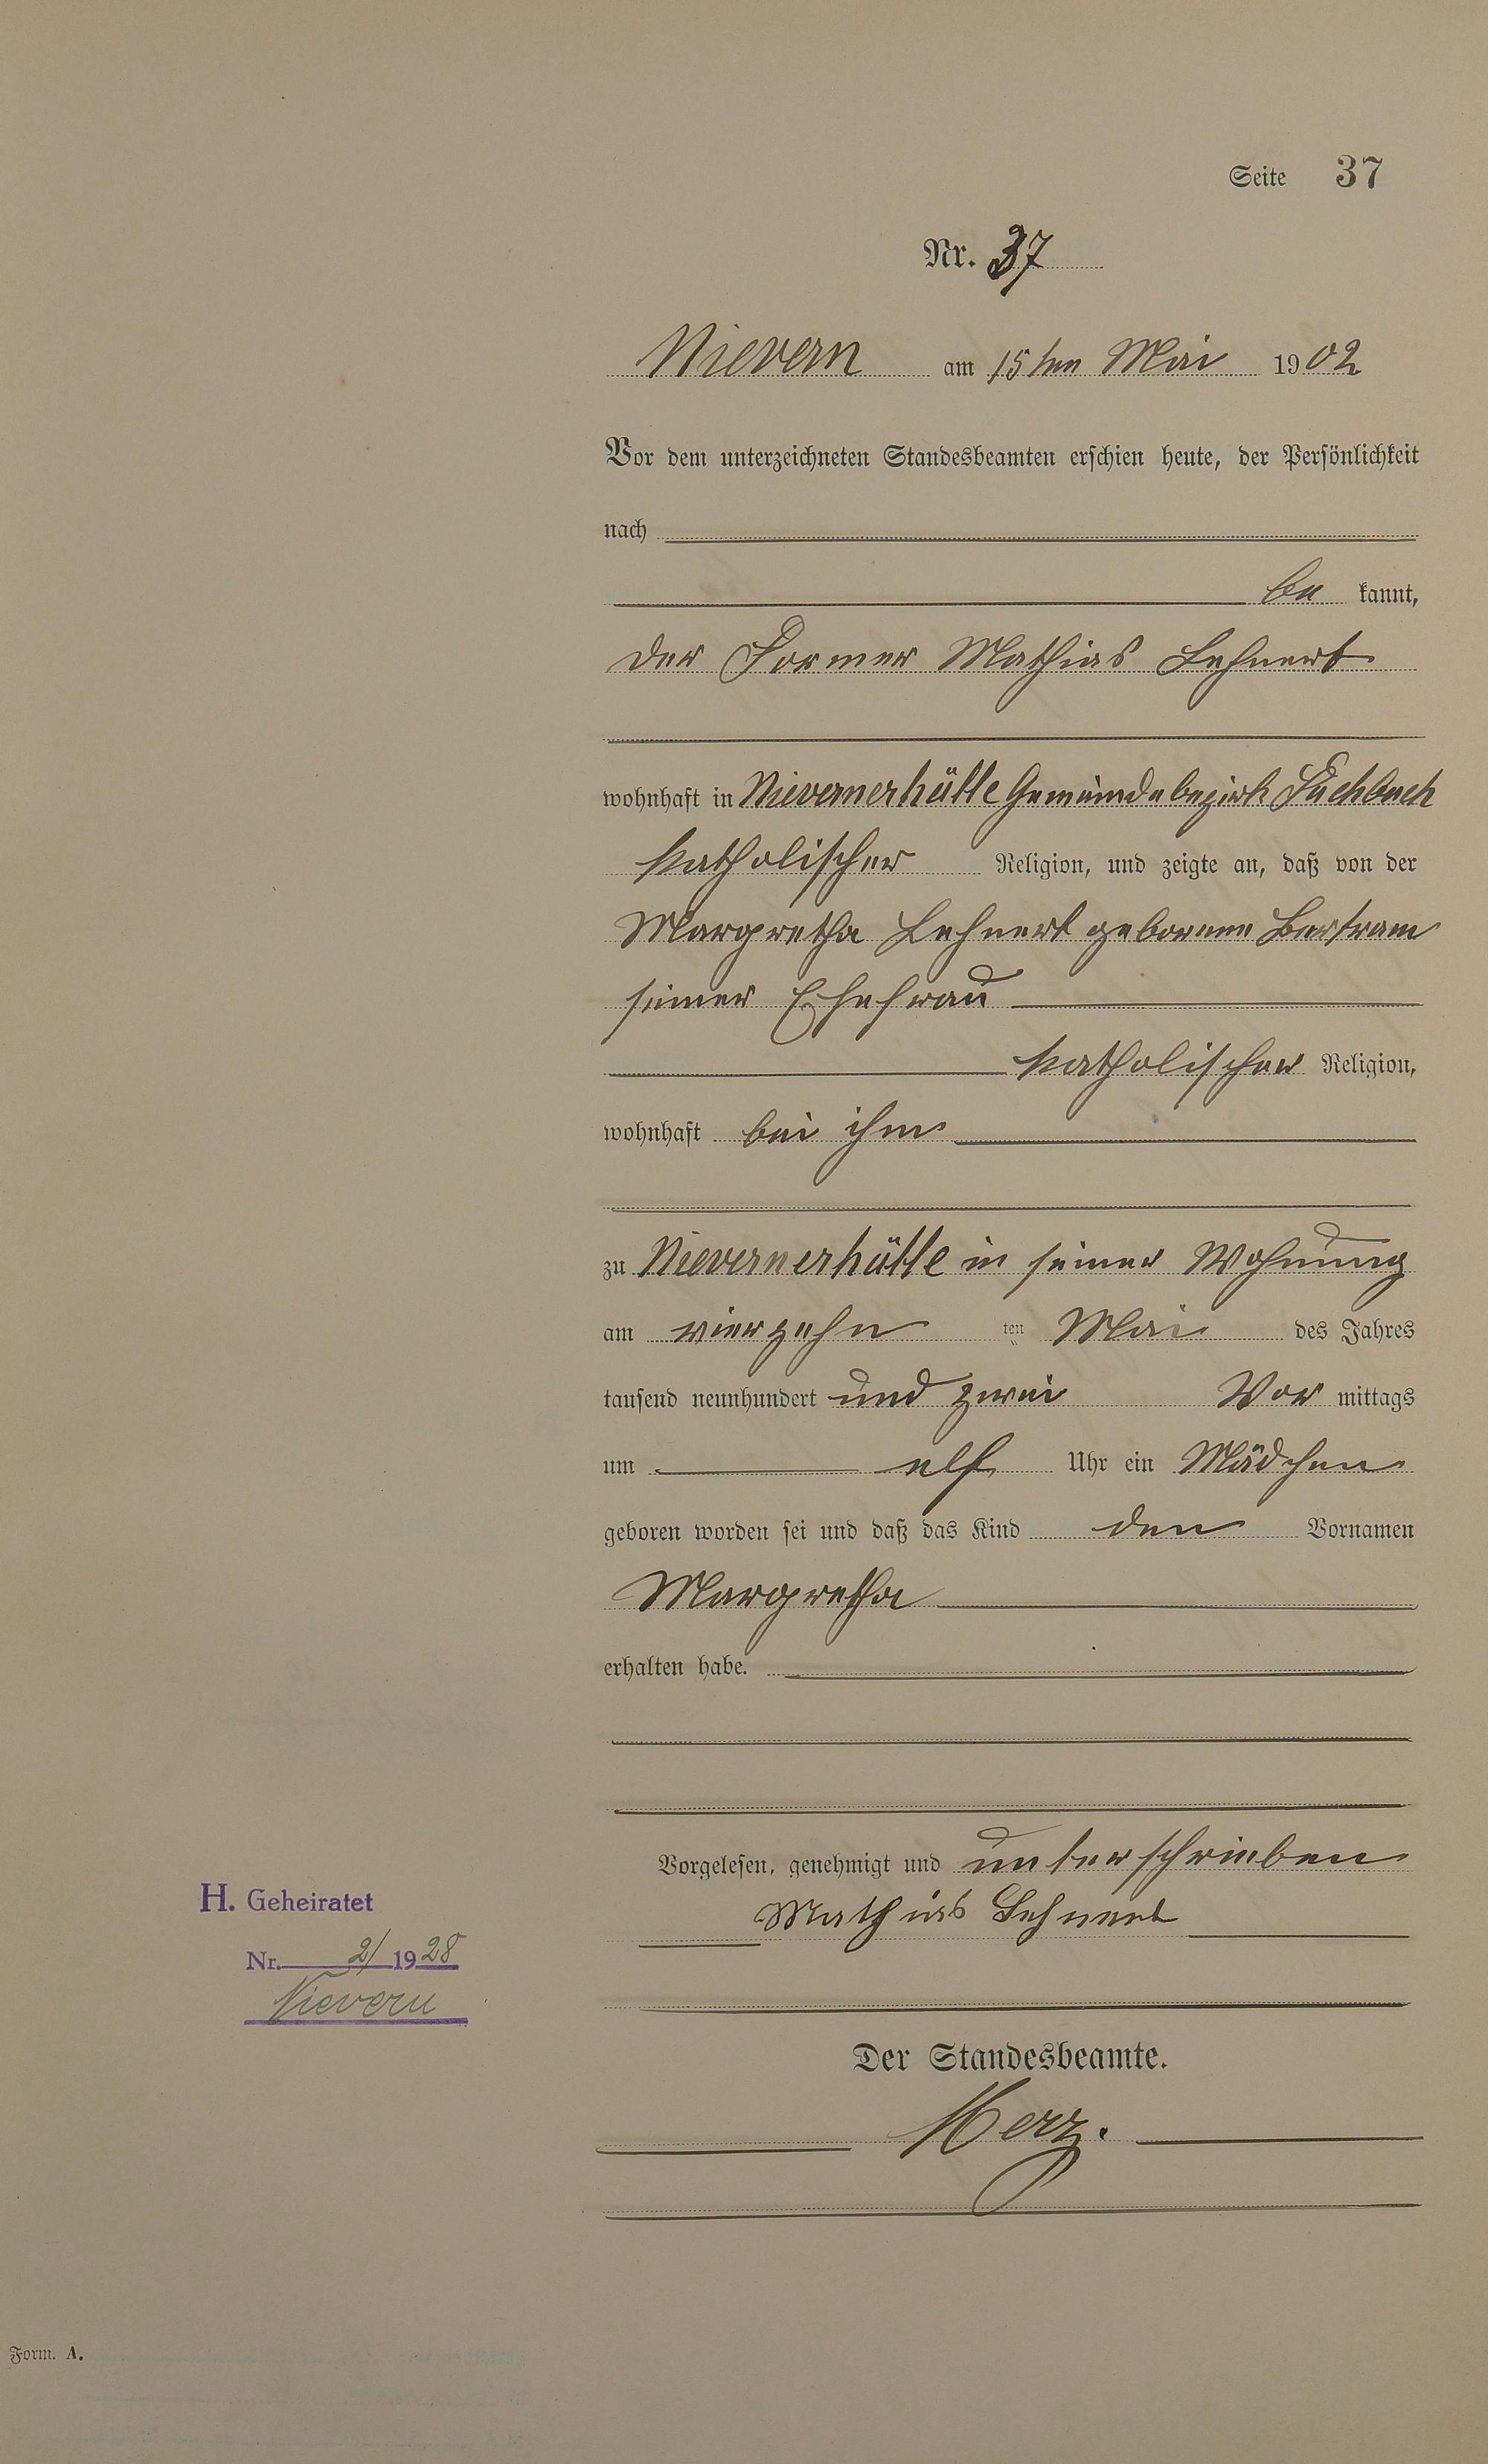 Seite 37
Nr. 37
Nievern am 15ten Mai 1902
Vor dem unterzeichneten Standesbeamten erschien heute, der Persönlichkeit
nach
be kannt,
der Former Mathias Lehnert
wohnhaft in Nievernerhütte Gemeindebezirk Fachbach
katholischer Religion, und zeigte an, daß von der
Margretha Lehnert geborene Bertram
seiner Ehefrau
katholischer Religion,
wohnhaft bei ihm
zu Nievernerhütte in seiner Wohnung
am vierzehn ten Mai des Jahres
tausend neunhundert und zwei Vor mittags
um elf Uhr ein Mädchen
geboren worden sei und daß das Kind den Vornamen
Margretha
erhalten habe.
Vorgelesen, genehmigt und unterschrieben
Mathias Lehnert
H. Geheiratet
Nr. 2/1928
Nievern
Der Standesbeamte.
Herz.
Form. A.